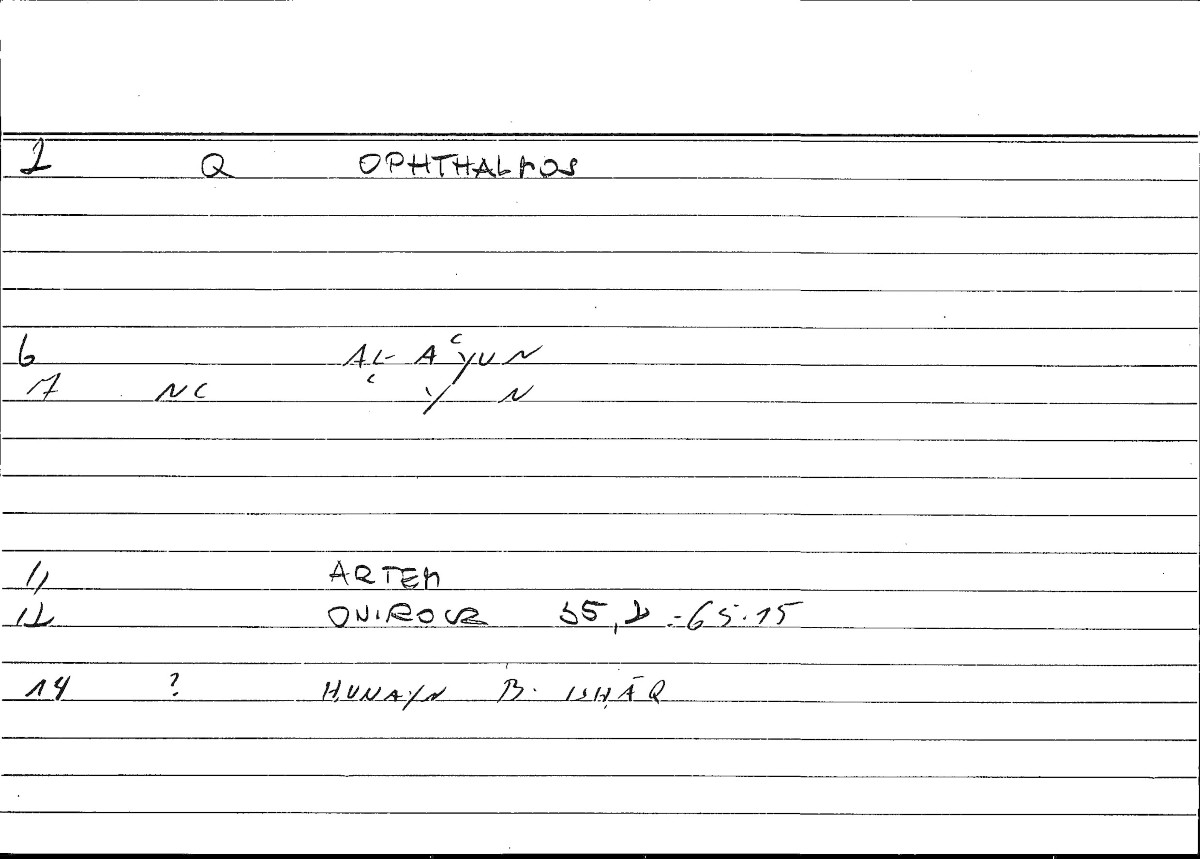 1 Q OPHTHALMOS
6 AL-AʿYUN
7 NC ʿ Y N
11 ARTEM
12 ONIROCR 35, 2 - 65.15
14 ? ḤUNAYN B. ISḤĀQ